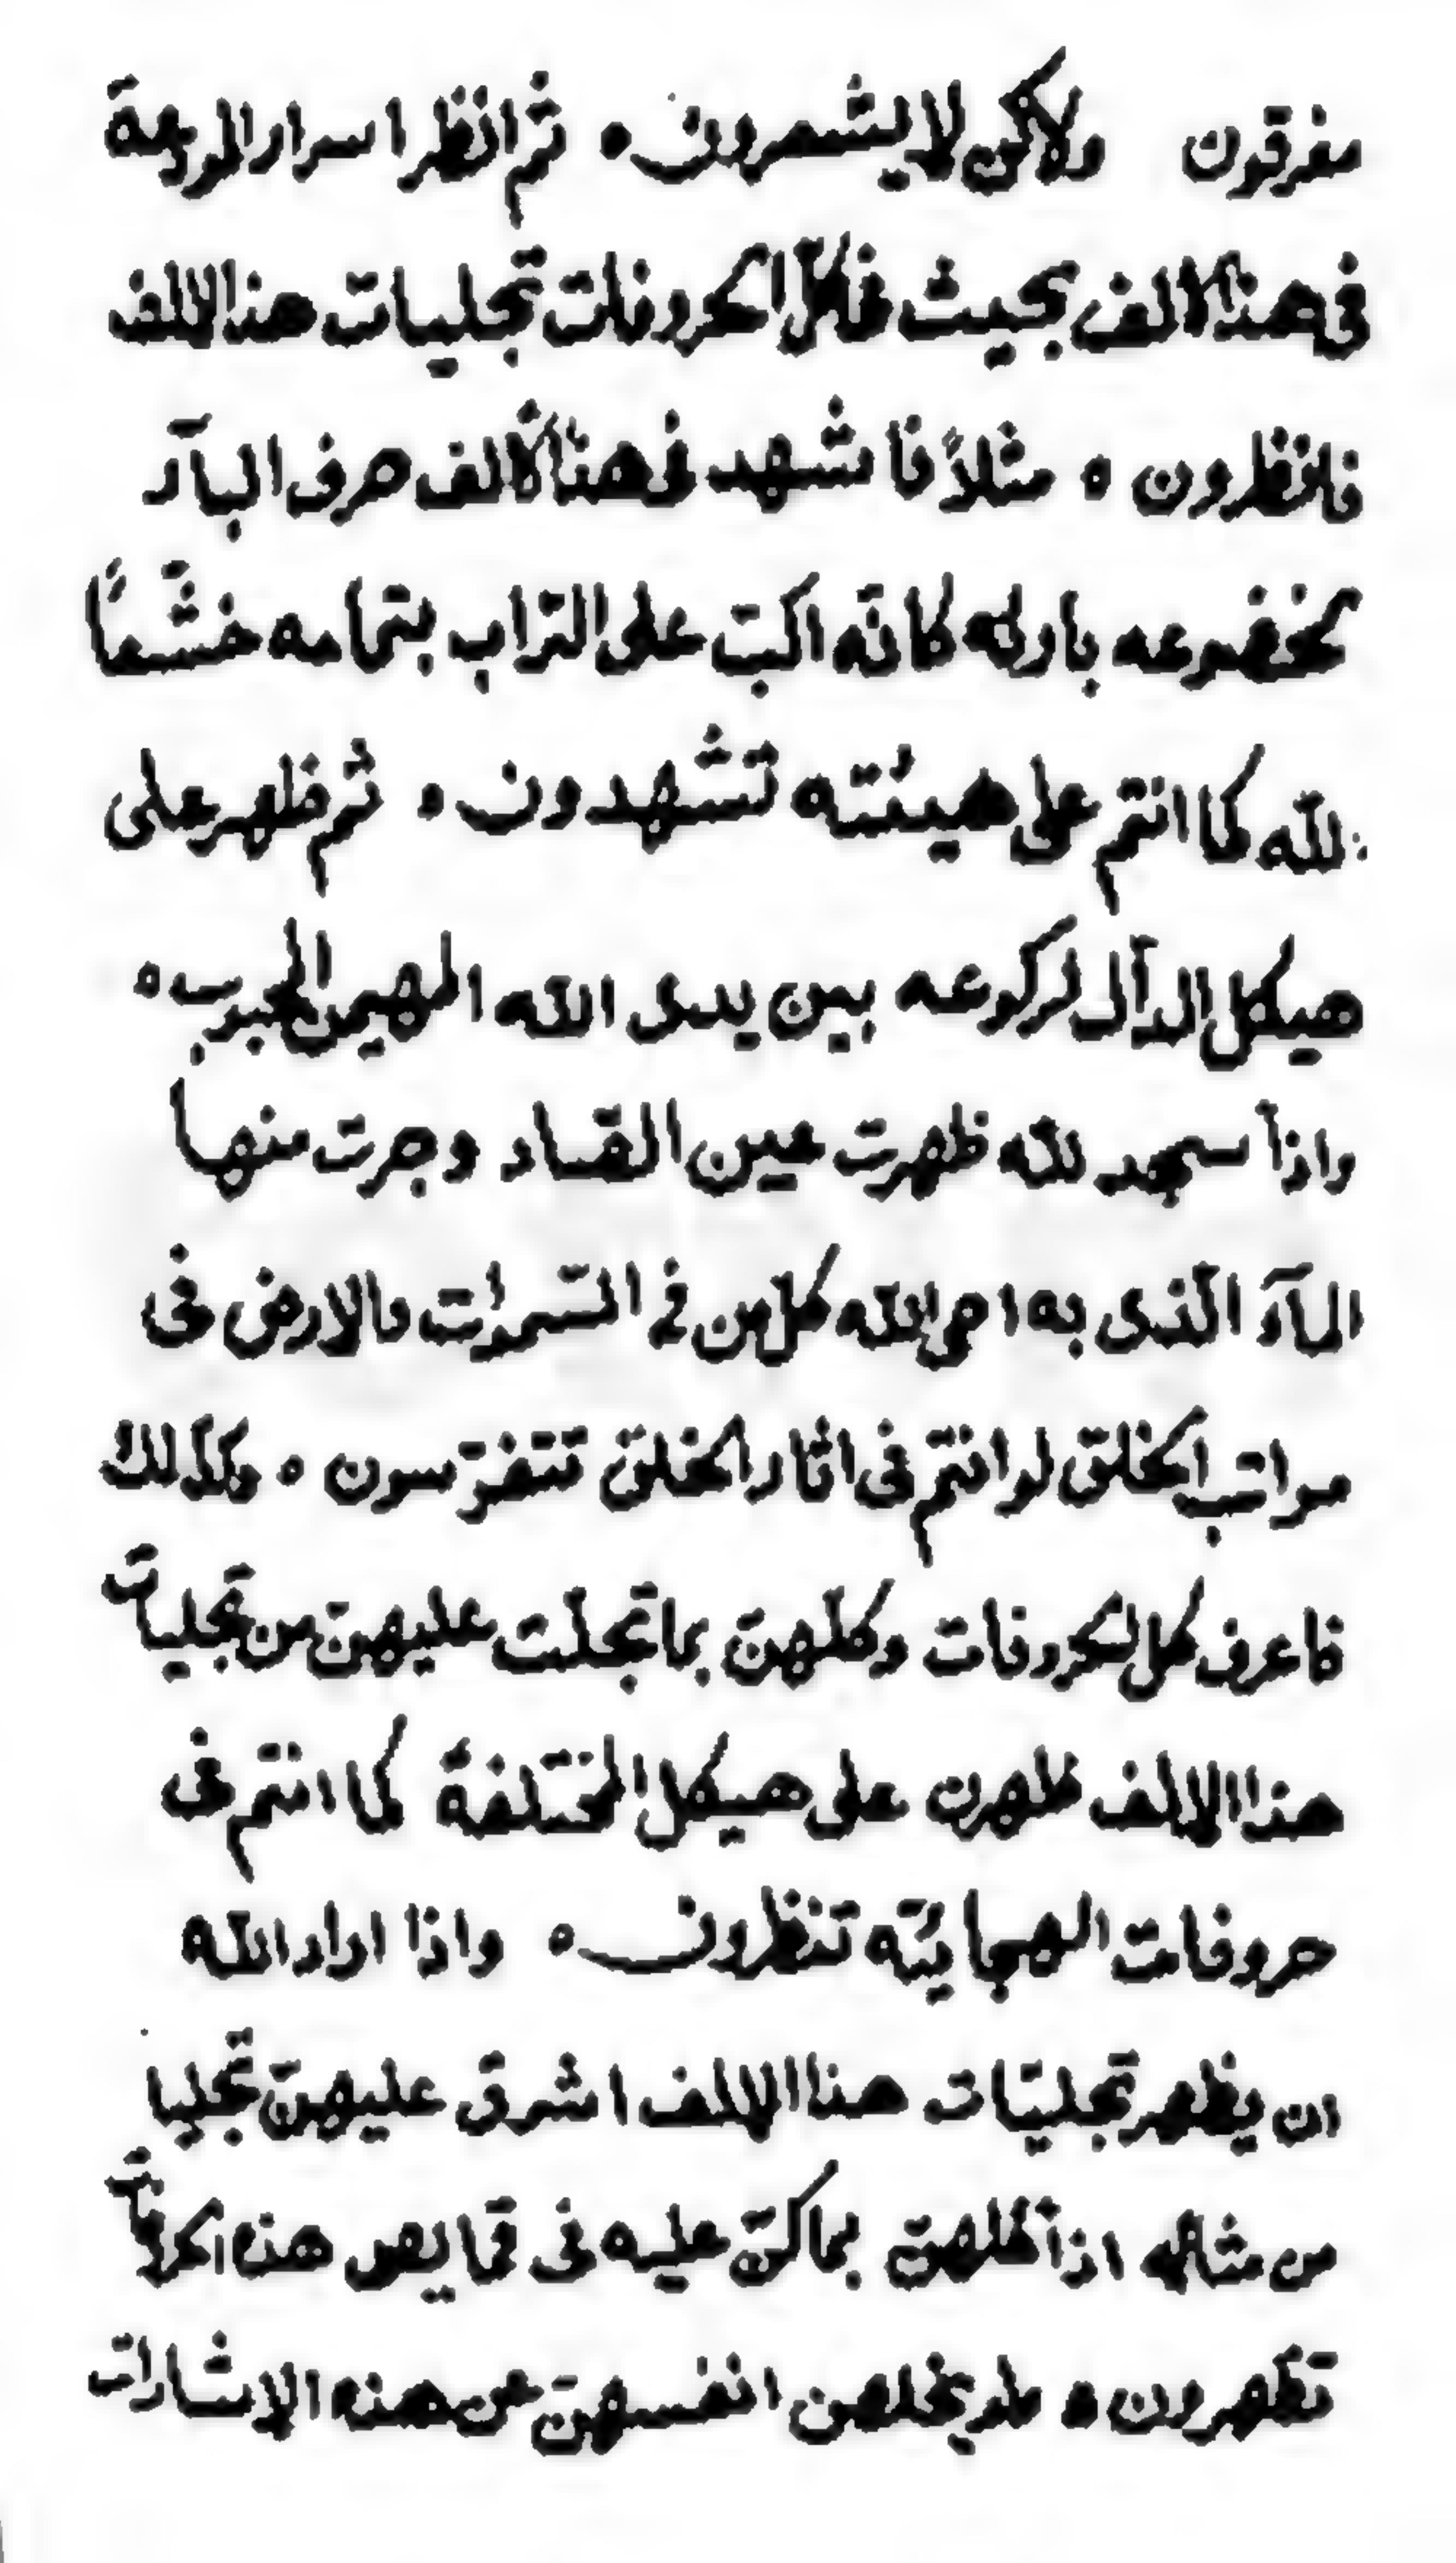 مغرقون ولاكن لا يشعرون ه ثم انظر اسرار المودعة
فى هذا الالف بحيث فاكل الحروفات تجليات هذا الالف
فانظرون ه مثلاً فاشهد فى هذا الالف حرف البآء
لخضوعه بارئه كانّه اكبّ على التراب بتمامه خشّعاً
للّه كما انتم على هيئته تشهدون ه ثم ظهر على
هيكل الدآل لركوعه بين يدى اللّه المهيمن المحبوب ه
واذاً سجد للّه ظهرت عين الصّاد وجرت منها
المآء الّذى به احى اللّه كل من فى السّموات والارض فى
مراتب الخلق لو انتم فى اثار الخلق تتفرّسون ه وكذلك
فاعرف كل الحروفات وكلّهنّ بما تجلّت عليهنّ من تجليات
هذا الالف ظهرن على هيكل المختلفة كما انتم فى
حروفات الهجائيّه تنظرون ه واذا اراد اللّه
ان يظهر تجليّات هذا الالف اشرق عليهنّ تجليا
من مثاله اذاً ظهرنّ بما كنّ عليه فى قمايص هذه الحروفات
تظهرون ه ولو يخلصن انفسهنّ عن هذه الاشارات